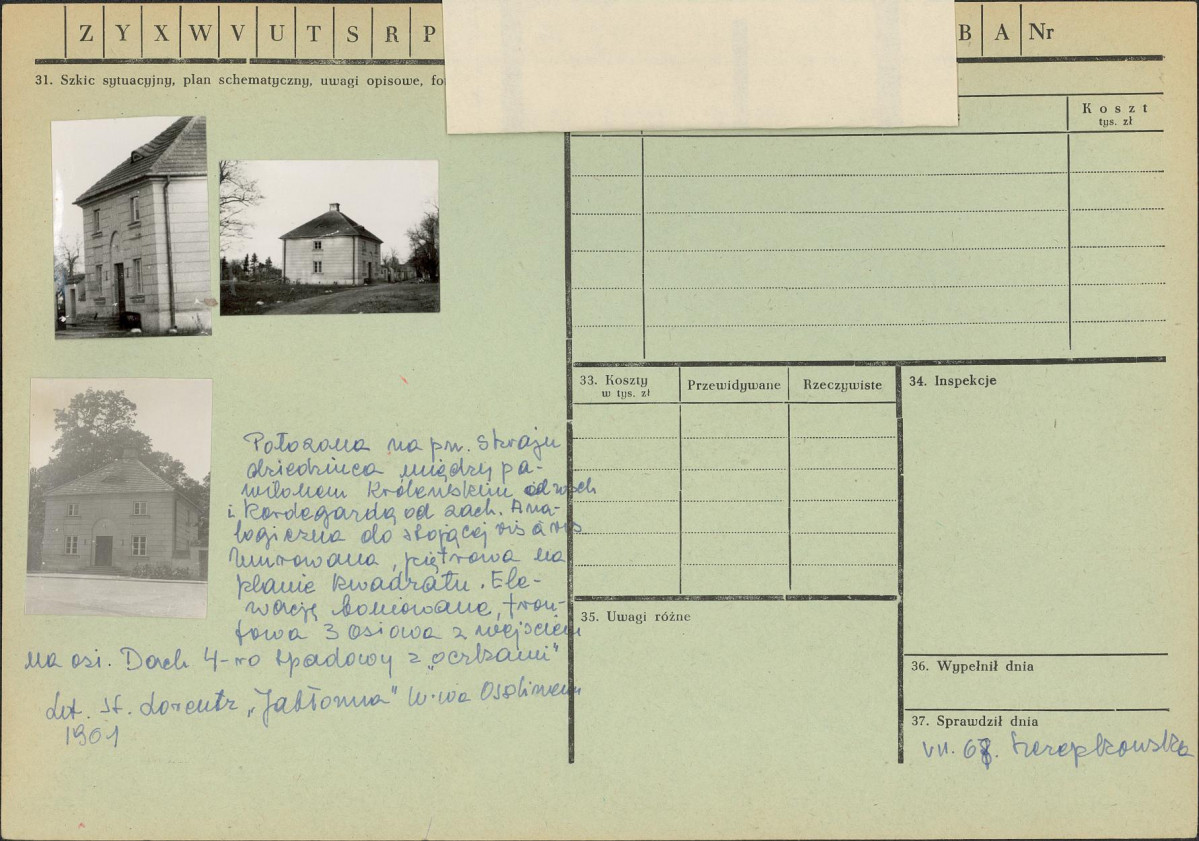 Z Y X W V U T S R P B A Nr
31. Szkic sytuacyjny, plan schematyczny, uwagi opisowe, fo
Koszt
tys. zł
Położona na pn. skraju
dziedzińca między pa-
wilonem Królewskim od wsch
i Kordegardą od zach. Ana-
logiczna do stojącej vis à vis
Murowana, piętrowa na
planie kwadratu. Ele-
wacje boniowane, fron-
towa 3 osiowa z wejściem
na osi. Dach 4-ro spadowy z „oczkami"
Lit. St. Lorentz „Jabłonna" W-wa Ossolineum
1961
33. Koszty
w tys. zł
Przewidywane
Rzeczywiste
34. Inspekcje
35. Uwagi różne
36. Wypełnił dnia
37. Sprawdził dnia
VII. 68.